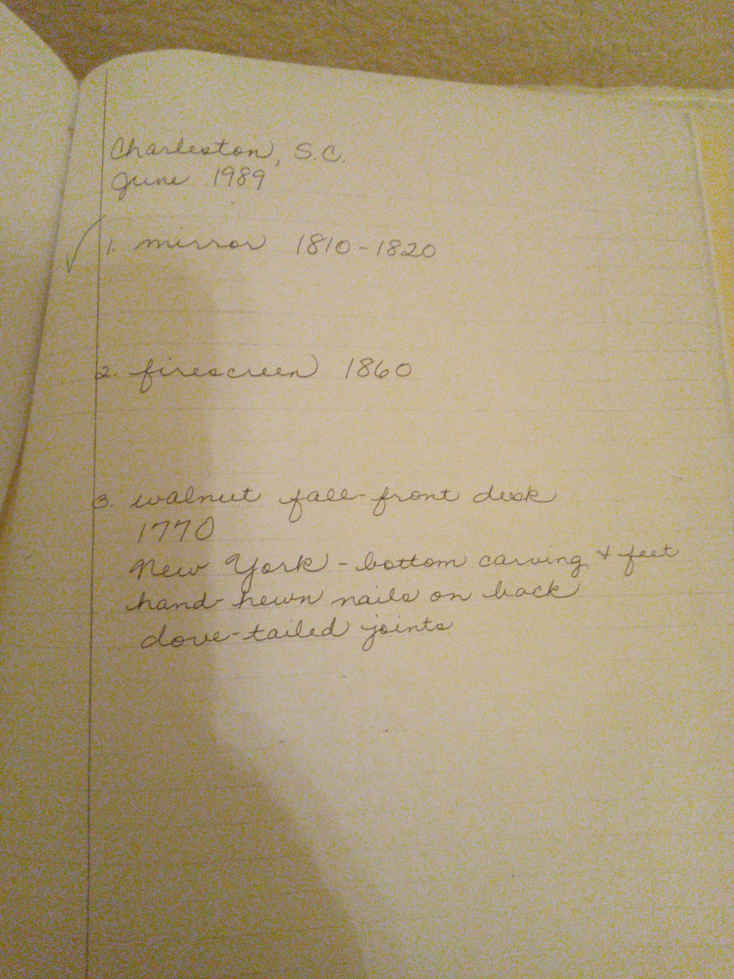 Charleston, S.C.
June 1989
1. mirror 1810-1820
2. firescreen 1860
3. walnut fall-front desk
1770
New York - bottom carving & feet
hand-hewn nails on back
dove-tailed joints